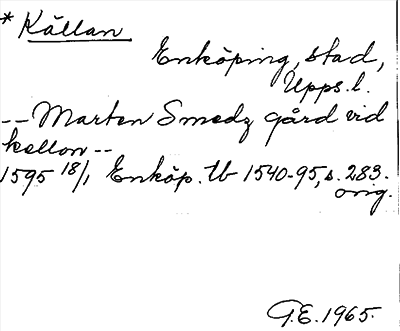 * Källan
Enköping, stad,
Upps. l.
-- Marten Smedz gård vid
kellon --
1595 18/1 Enköp. tb 1540-95, s. 283.
orig.
G.E. 1965.